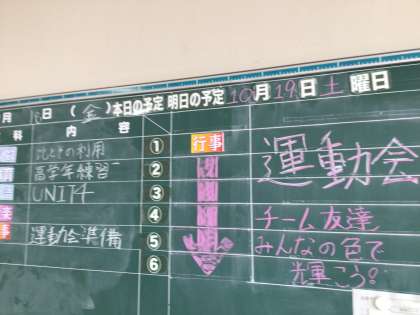 月 日(金)本日の予定 明日の予定 10月19日土曜日
科 内容
① 比とその利用
② 高学年練習
③ UNIT4
④
⑤ 運動会準備
⑥
行事
運動会
チーム友達
みんなの色で
輝こう!